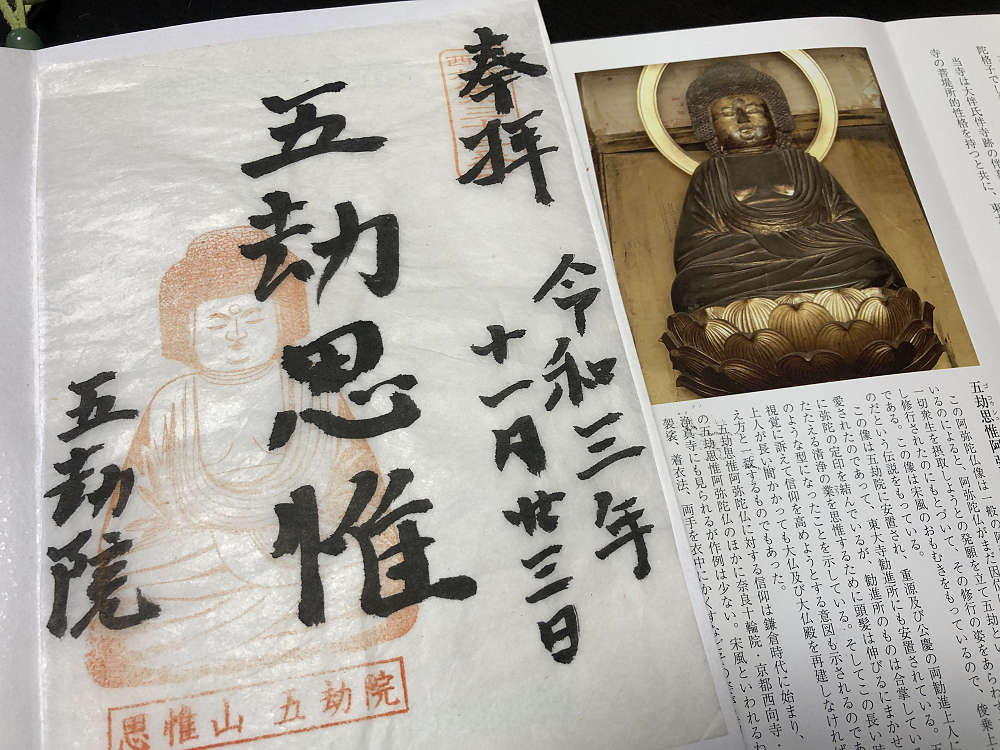 奉拝
令和三年
十一月廿三日
五劫思惟
五劫院
思惟山 五劫院
陀格子で
当寺は大伴氏伴寺跡の伴
寺の菩提所的性格を持つと共に、東
五劫思惟阿弥
この阿弥陀仏像は一般の阿
いるのによると、阿弥陀仏がまだ因位
一切衆生を摂取しようとの発願を立て五劫とい
し修行されたのにもとづいて、その修行の姿をあら
である。この像は宋風のおもむきをもっているので、俊乗上
のだという伝説をもっている。
この像は五劫院に安置され、重源及び公慶の両勧進上人に
愛されたのであって、東大寺勧進所にも安置されている。
に弥陀の定印を結んでいるが、勧進所のものは合掌してい
たたえる清浄の業を思惟するために頭髪は伸びるにまかせ
のような型になったことを示している。そしてこの長い時
視覚に訴えて信仰を高めようとする意図も示されるのであ
上人が長い間かかっても大仏及び大仏殿を再建しなければ
え方と一致するものでもあった。
五劫思惟阿弥陀仏に対する信仰は鎌倉時代に始まり、
の五劫思惟阿弥陀仏のほかに奈良十輪院・京都西向寺・
浄真寺にも見られるが作例は少ない。宋風といわれるわ
袈裟、着衣法、両手を衣中にかくすなど